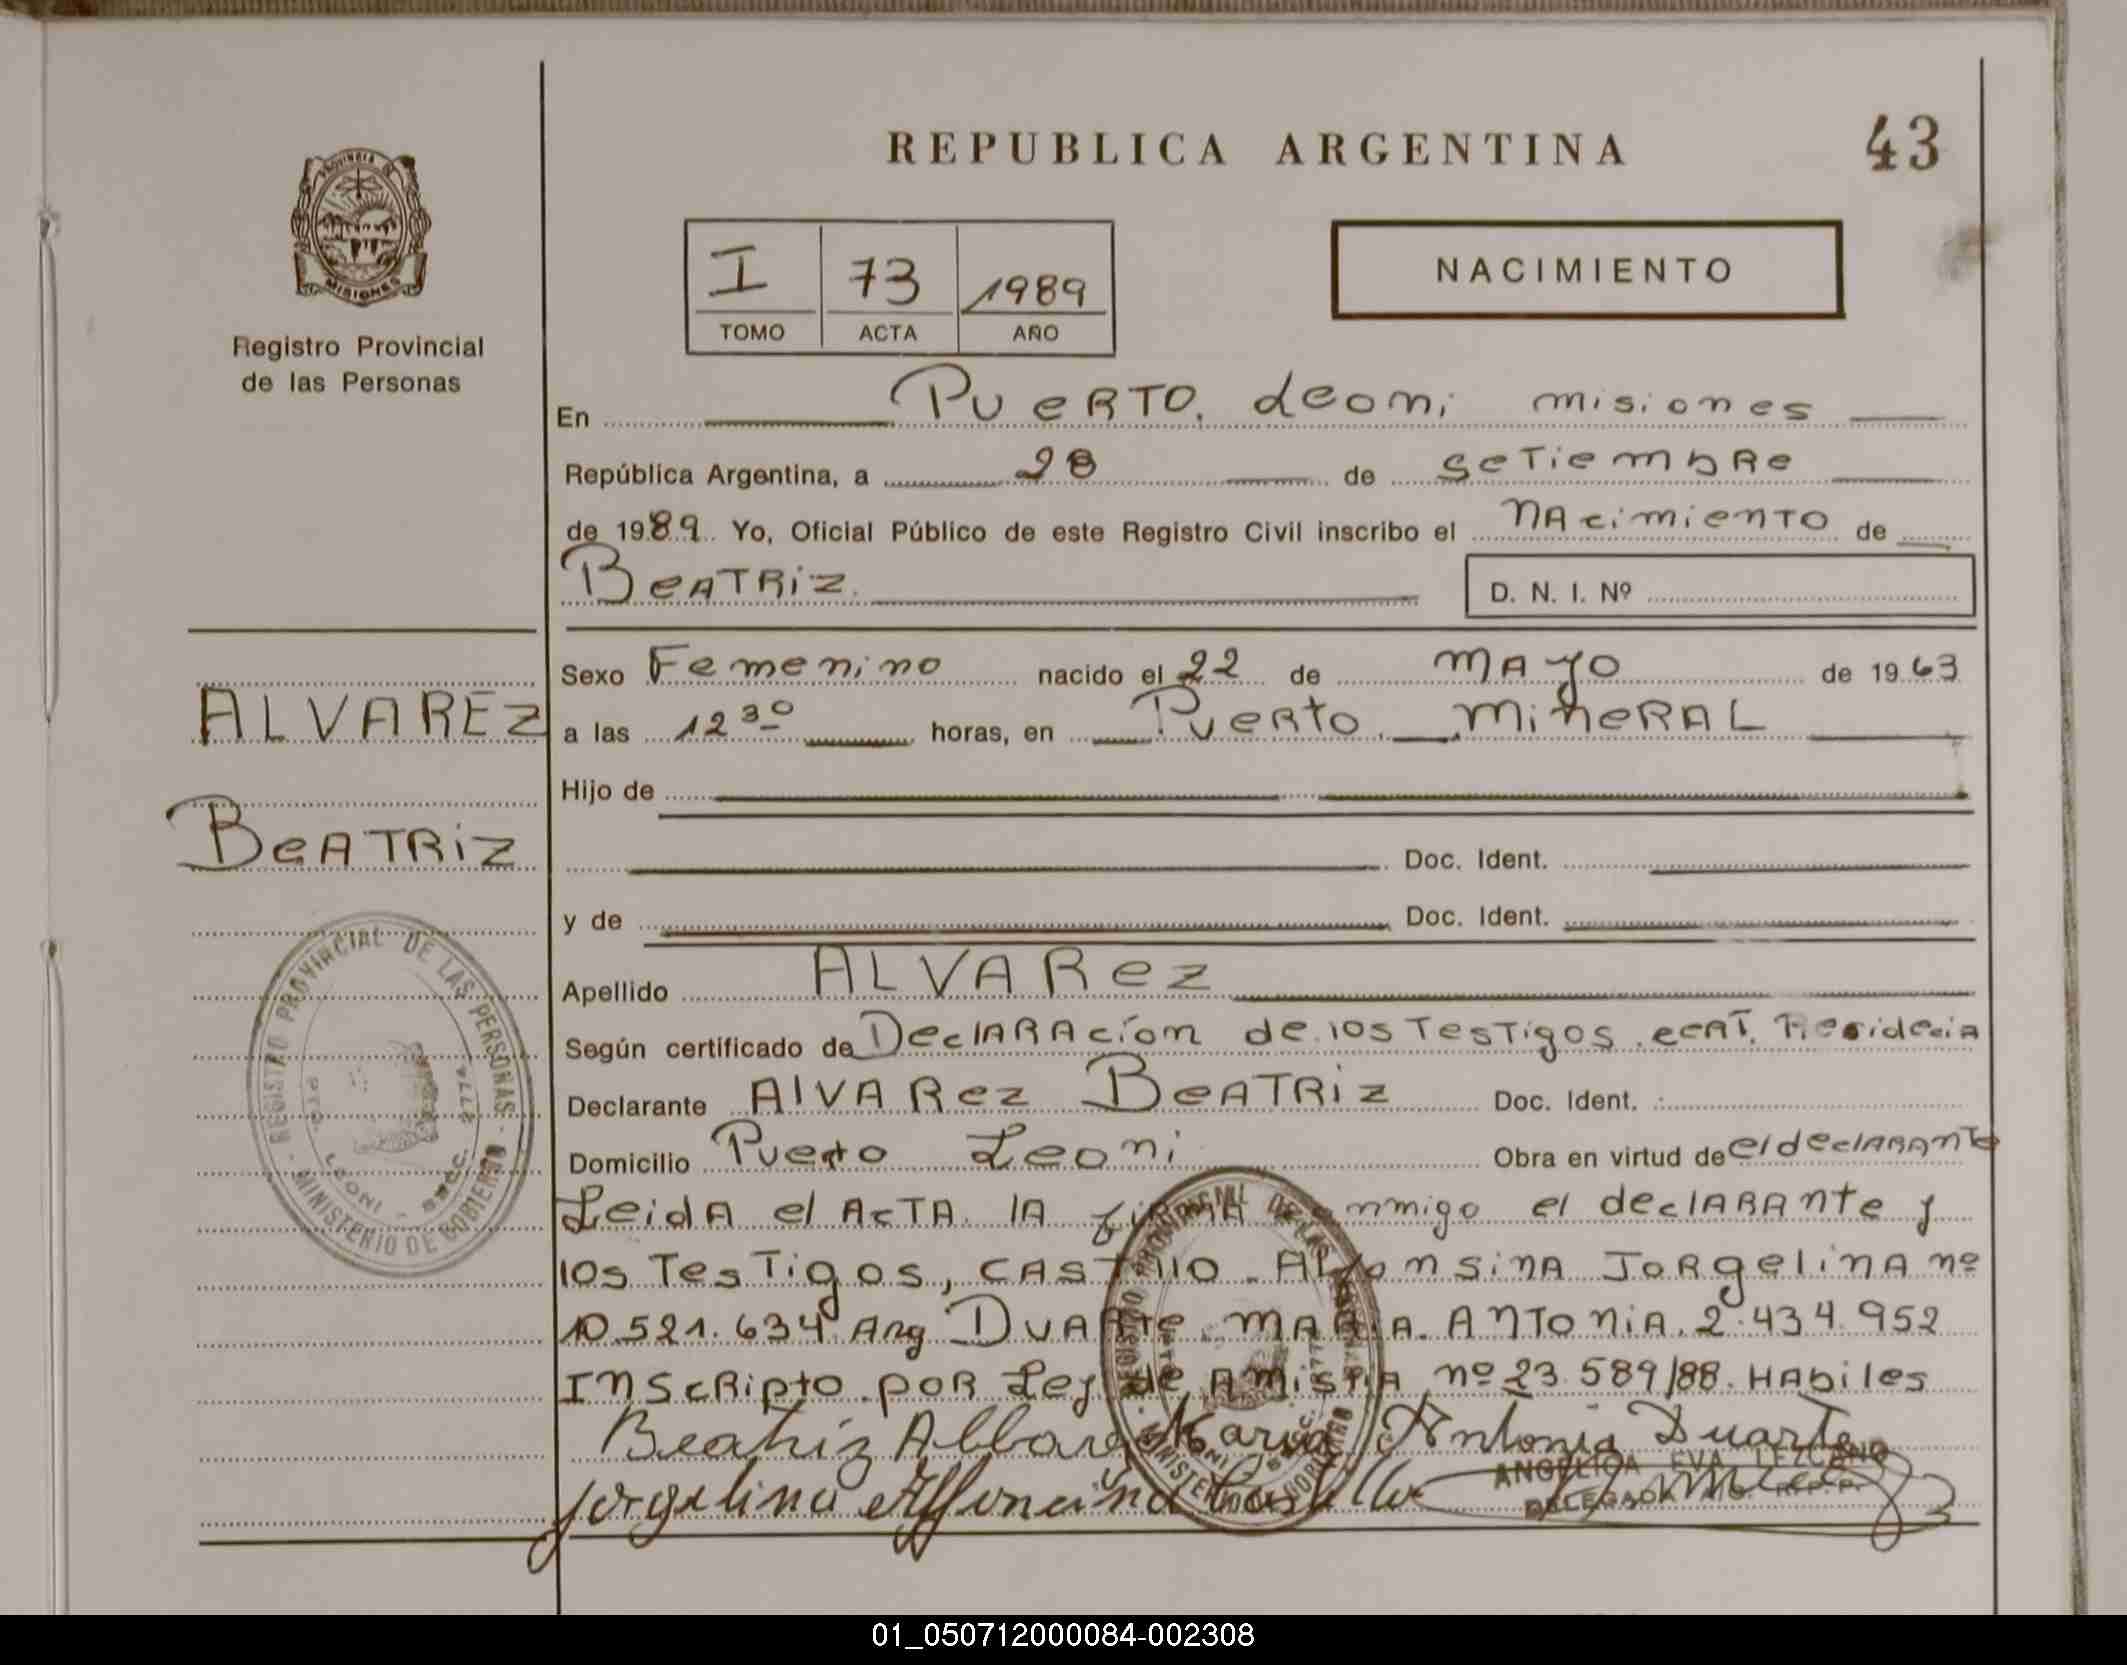 REPUBLICA ARGENTINA
43
PROVINCIA DE
MISIONES
Registro Provincial
de las Personas
I 73 1989
TOMO ACTA AÑO
NACIMIENTO
En Puerto Leoni misiones
República Argentina, a 28 de setiembre
de 1989. Yo, Oficial Público de este Registro Civil inscribo el nacimiento de
Beatriz D. N. I. Nº
Sexo Femenino nacido el 22 de mayo de 1963
ALVAREZ
a las 12 30 horas, en Puerto Mineral
Hijo de
Beatriz
Doc. Ident.
y de Doc. Ident.
Apellido ALVARez
Según certificado de Declaracíon de los Testigos
Declarante Alvarez Beatriz Doc. Ident.
Domicilio Puerto Leoni Obra en virtud de el declarante
Leida el acta la firma conmigo el declarante y
los Testigos, Castillo Alfonsina Jorgelina nº
10.521.634 Arg Duarte maria Antonia. 2.434.952
Inscripto por Ley de Amistia nº 23.589/88. Habiles
Beatriz Maria Antonia Duarte
Jorgelina Castillo
ANGELICA EVA LEZCANO
DELEGADA
REGISTRO PROVINCIAL DE LAS PERSONAS
MINISTERIO DE GOBIERNO
PTO LEONI
01_050712000084-002308